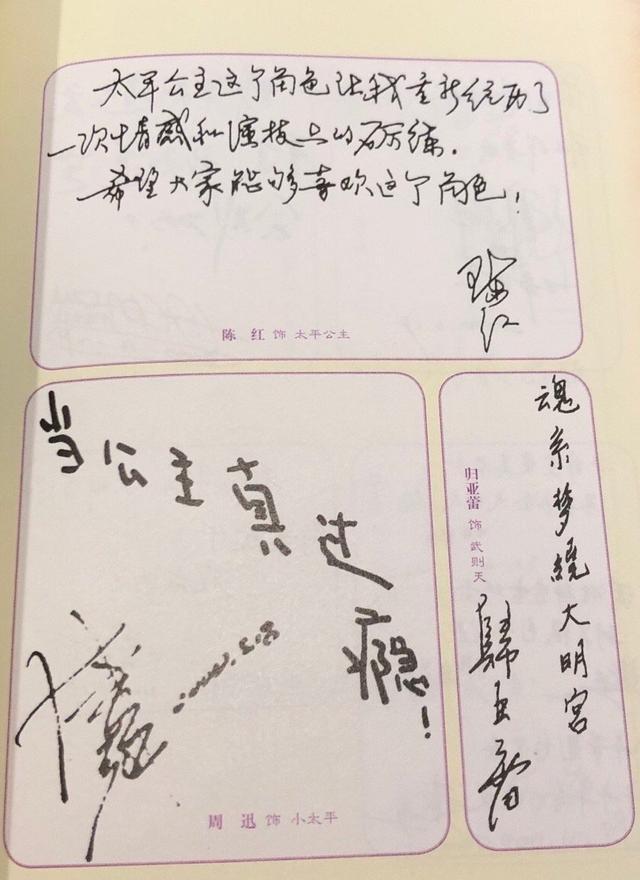 太平公主这个角色让我重新经历了
一次情感和演技上的磨练.
希望大家能够喜欢这个角色!
陈红
陈 红 饰 太平公主
当公主真过瘾!
周 迅 饰 小太平
魂系梦繞大明宫
归亚蕾 饰 武则天
歸亞蕾